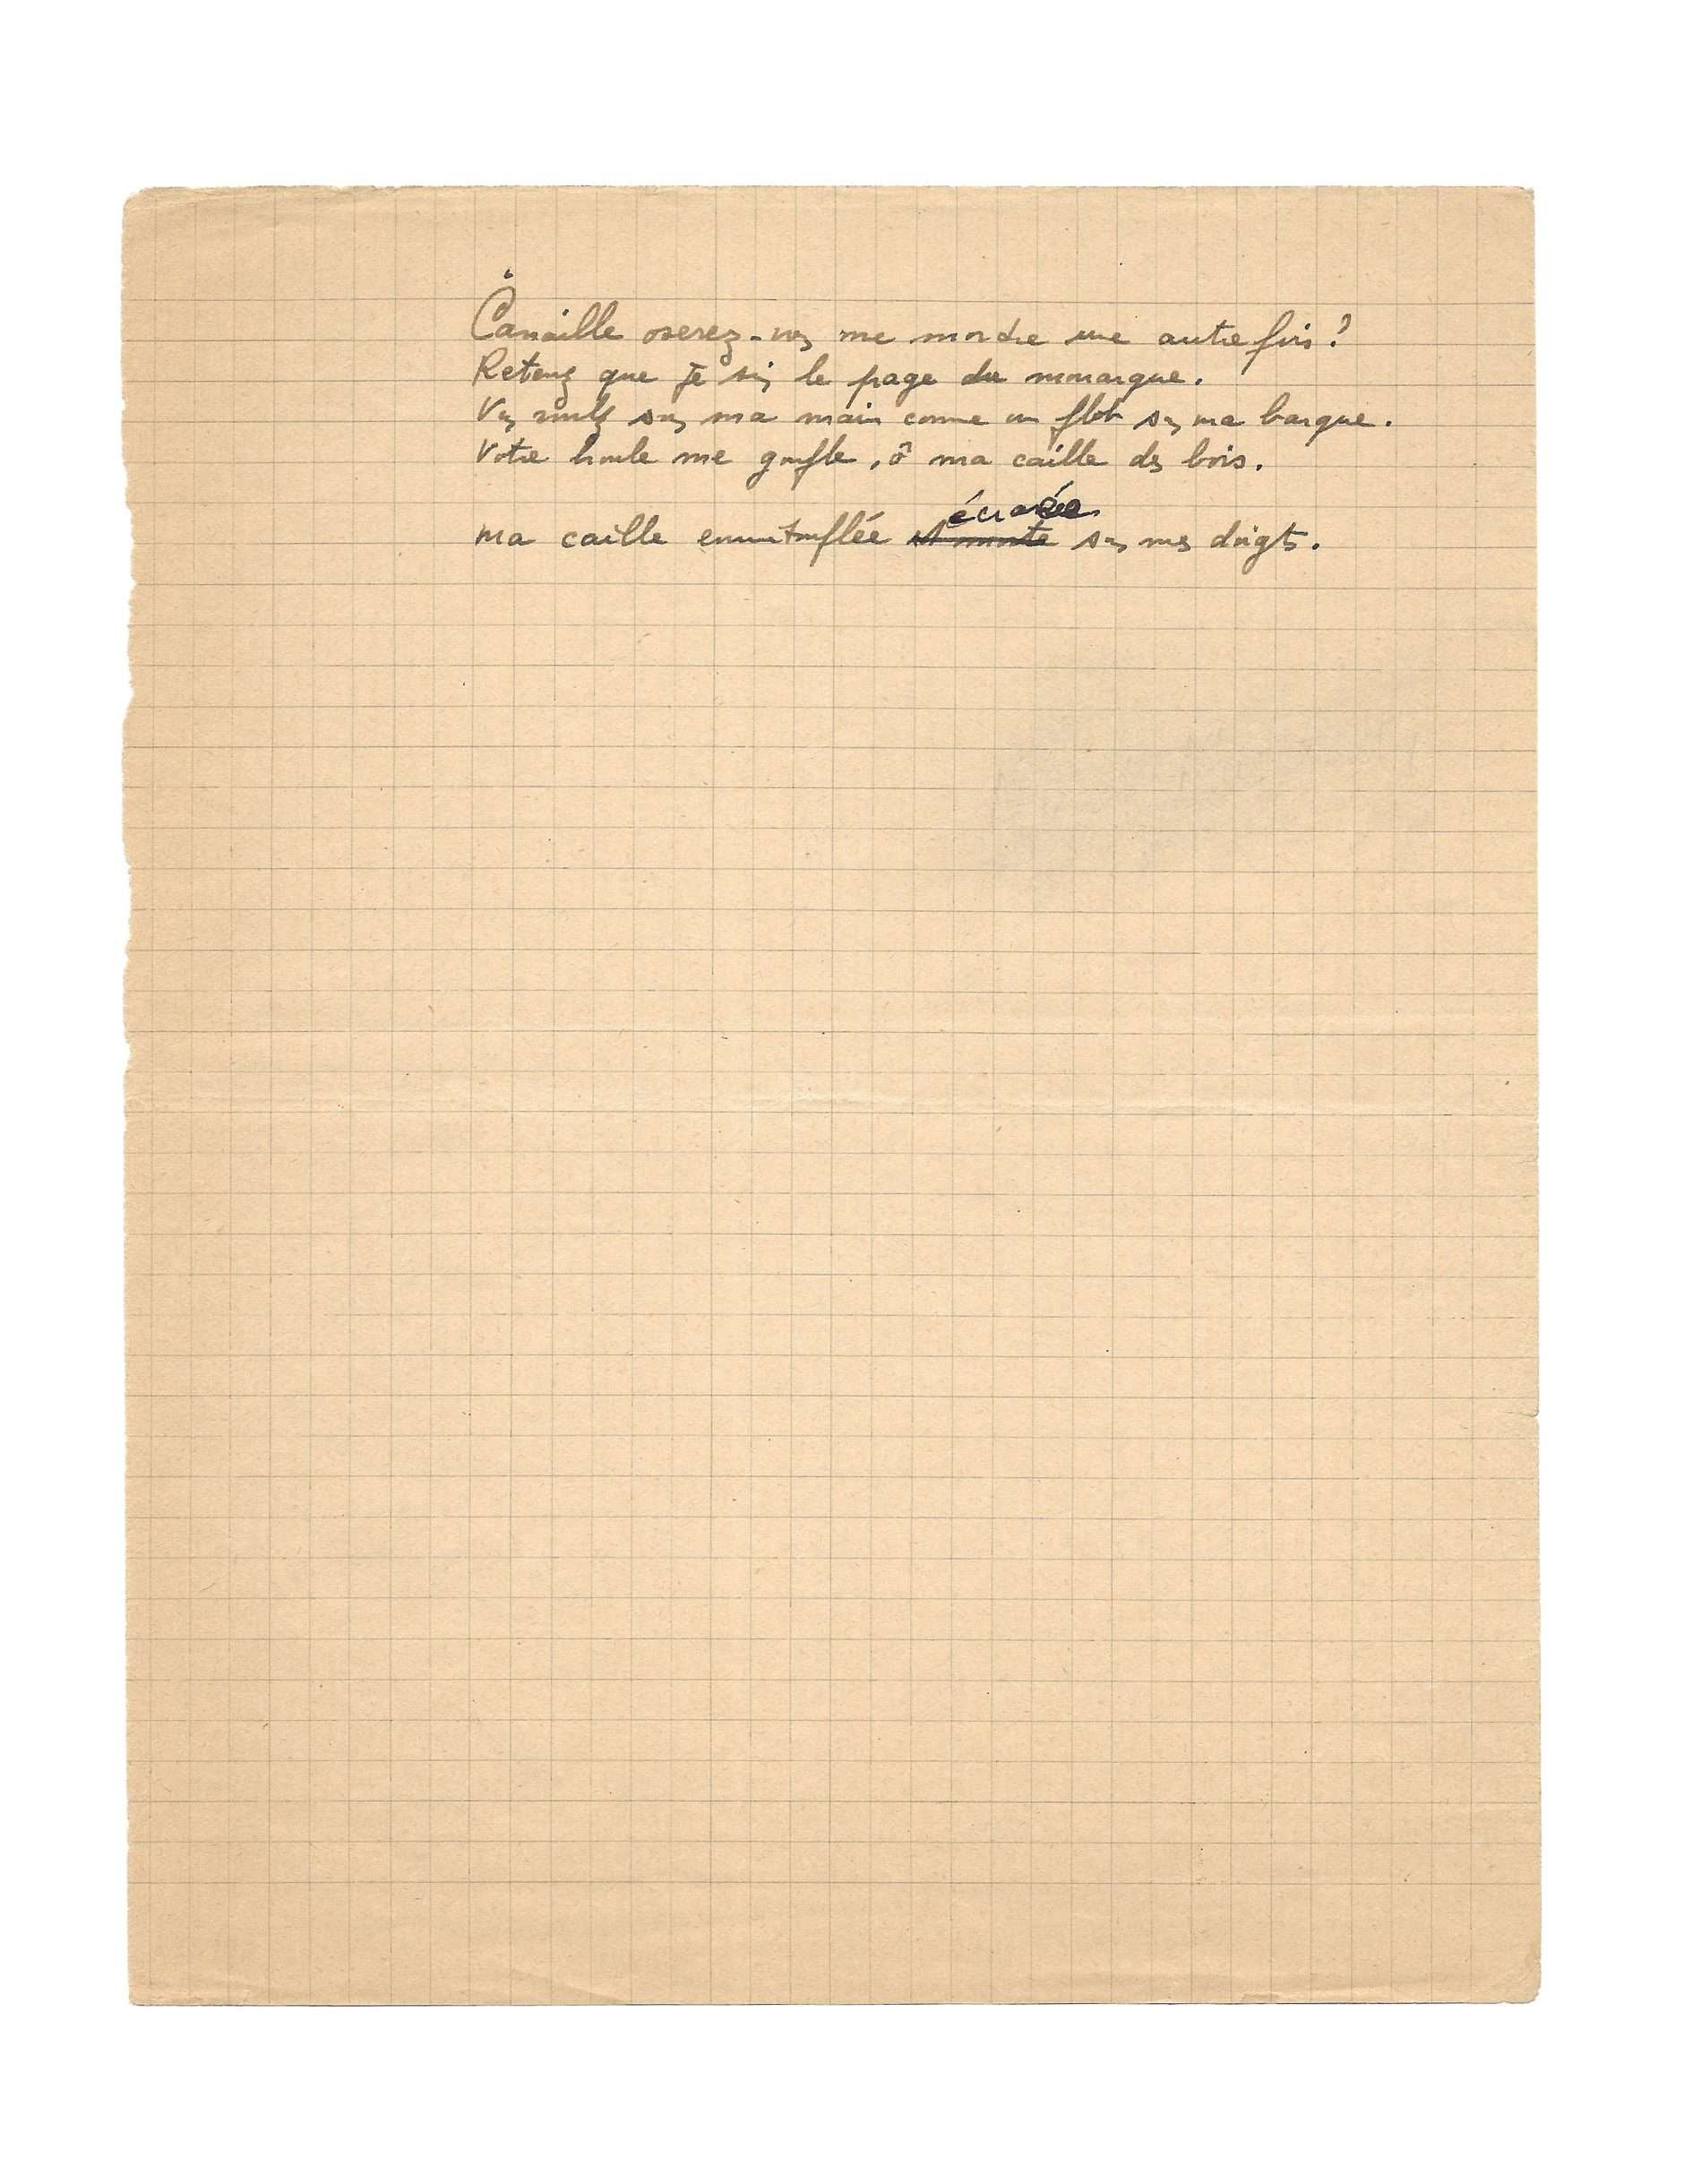 Canaille oserez-vous me mordre une autre fois?
Retenez que je suis le page du monarque.
Vous roulez sous ma main comme un flot sous ma barque.
Votre houle me gonfle, ô ma caille des bois.
écrasée
ma caille emmitouflée est morte sous mes doigts.